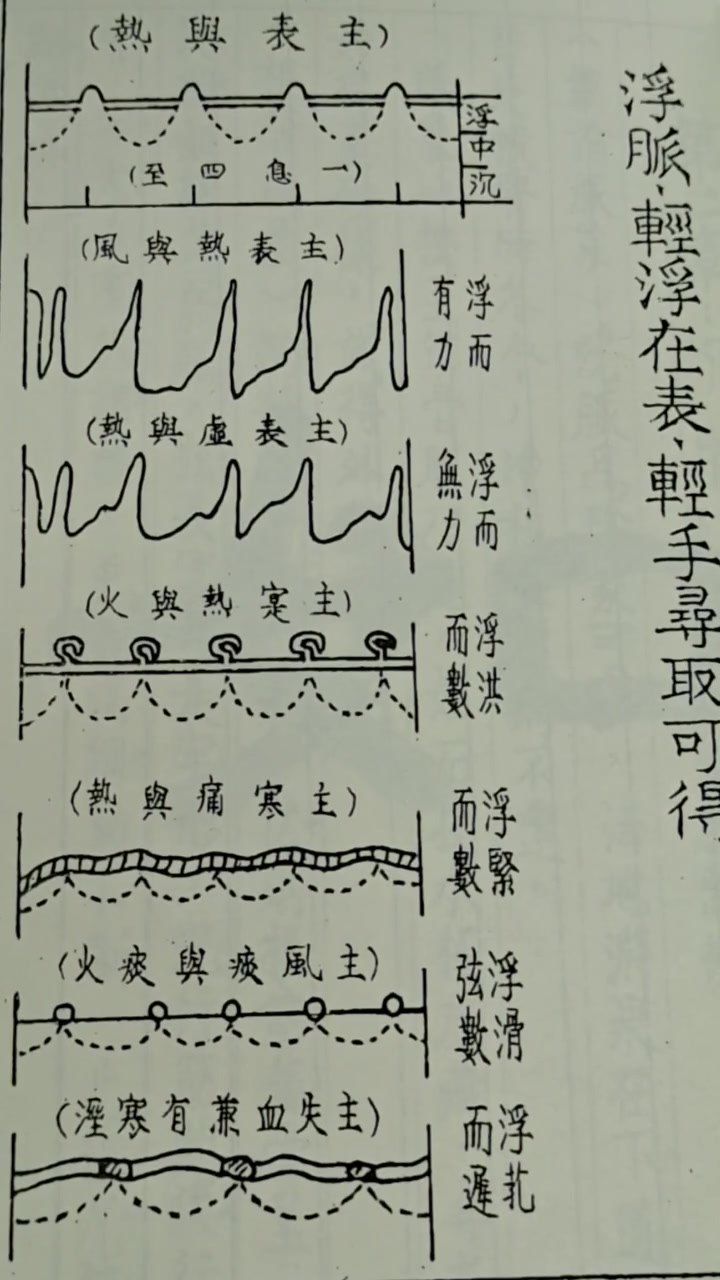 浮脈、輕浮在表、輕手尋取可得
(主表與熱)
浮
中
沉
(一息四至)
浮而
有力
(主表熱與風)
浮而
無力
(主表虛與熱)
浮洪
而數
(主寔熱與火)
浮緊
而數
(主寒痛與熱)
浮滑
弦數
(主風痰與痰火)
浮芤
而遲
(主失血兼有寒溼)